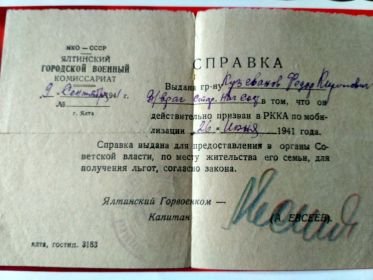 НКО — СССР
ЯЛТИНСКИЙ
ГОРОДСКОЙ ВОЕННЫЙ
КОМИССАРИАТ
2 Сентября 1941 г.
№
г. Ялта
СПРАВКА
Выдана гр-ну Кузеванов Федор
в том, что он
действительно призван в РККА по моби-
лизации 26 Июня 1941 года.
Справка выдана для предоставления в органы Со-
ветской власти, по месту жительства его семьи, для
получения льгот, согласно закона.
Ялтинский Горвоенком —
Капитан
(А. ЕВСЕЕВ)
Ялта, гостип. 3183